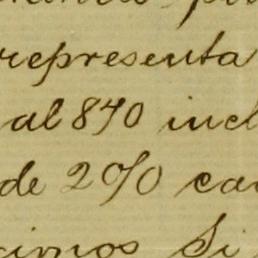 representa
al 840 incl
de 2% ca
Si